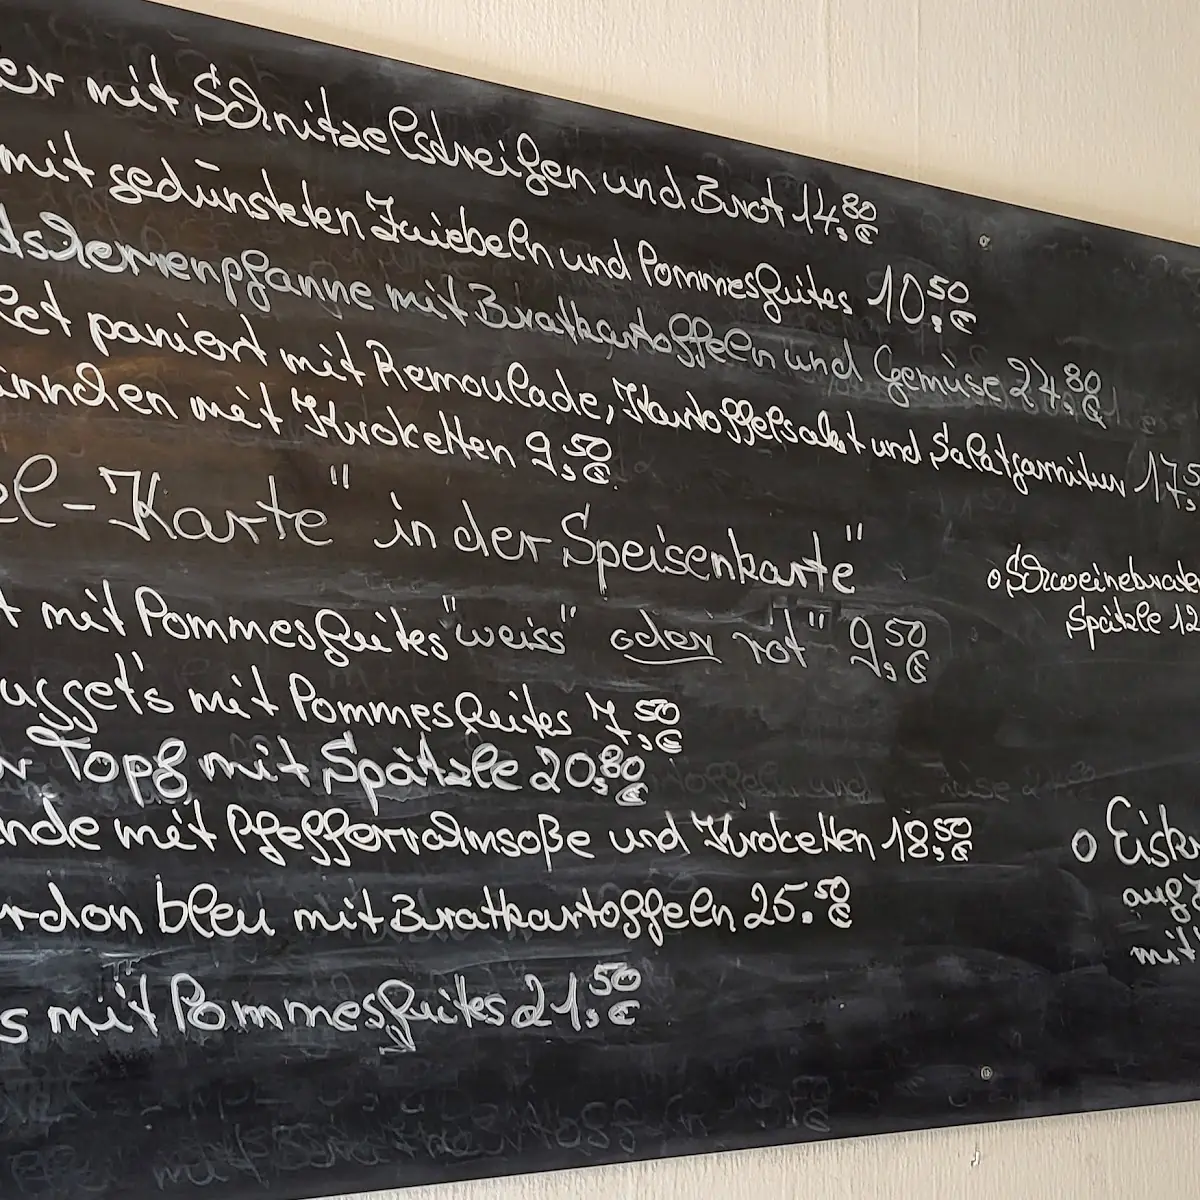 er mit Schnitzelstreifen und Brot 14,80 €
mit gedünsteten Zwiebeln und Pommesfrites 10,50 €
mit Bratkartoffeln und Gemüse 24,80 €
paniert mit Remoulade, Kartoffelsalat und Salatgarnitur 17,5
mit Kroketten 9,50 €
el-Karte" in der Speisenkarte"
t mit Pommesfrites "weiss" oder rot" 9,50 €
uggets mit Pommesfrites 7,50 €
r Topf mit Spätzle 20,80 €
nde mit Pfefferrahmsoße und Kroketten 18,50 €
rdon bleu mit Bratkartoffeln 25.50 €
s mit Pommesfrites 21,50 €
o Schweinebrate
Spätzle 12
o Eisk
auf
mit